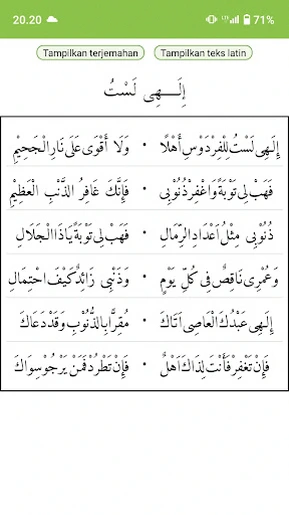 20.20 71%
Tampilkan terjemahan Tampilkan teks latin
إِلَــهِى لَسْتُ
إِلَهِى لَسْتُ لِلْفِرْدَوْسِ أَهْلًا • وَلَا أَقْوَى عَلَى نَارِ الْجَحِيْمِ
فَهَبْ لِى تَوْبَةً وَاغْفِرْ ذُنُوْبِى • فَإِنَّكَ غَافِرُ الذَّنْبِ الْعَظِيْمِ
ذُنُوْبِى مِثْلُ أَعْدَادِ الرِّمَالِ • فَهَبْ لِى تَوْبَةً يَاذَا الْجَلَالِ
وَعُمْرِى نَاقِصٌ فِى كُلِّ يَوْمٍ • وَذَنْبِى زَائِدٌ كَيْفَ احْتِمَالِ
إِلَهِى عَبْدُكَ الْعَاصِى أَتَاكَ • مُقِرًّا بِالذُّنُوْبِ وَقَدْ دَعَاكَ
فَإِنْ تَغْفِرْ فَأَنْتَ لِذَاكَ أَهْلٌ • فَإِنْ تَطْرُدْ فَمَنْ يَرْجُو سِوَاكَ